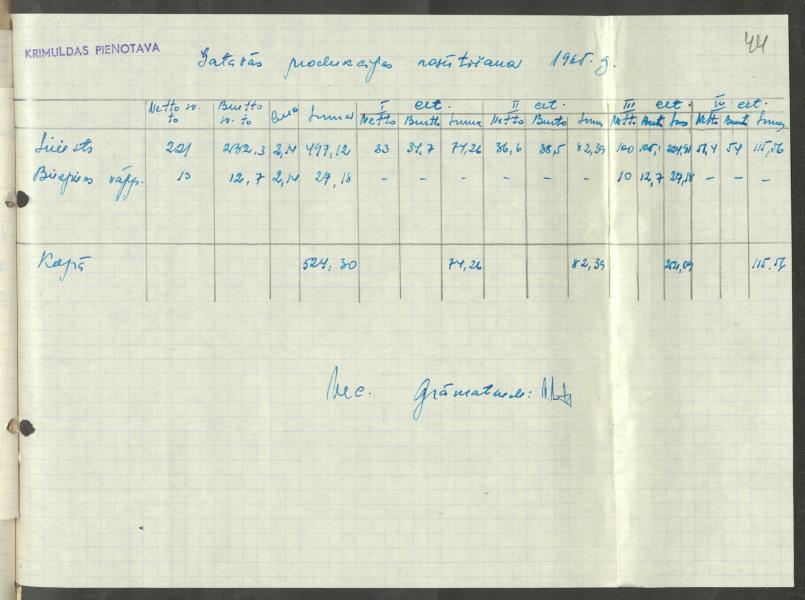 44
KRIMULDAS PIENOTAVA
Gatavās produkcijas nosūtīšana 1965. g.
I cet. II cet. III cet. IV cet.
Netto sv. to Brutto sv. to Cena Summa Netto Brutto Summa Netto Brutto Summa Netto Brutto Netto Brutto Summa
Sviests 221 232,3 2,14 497,12 33 34,7 74,26 36,6 38,5 82,39 100 105,1 224,91 51,4 54 115,56
Biezpiens 12,7 2,14 27,18 - - - - - - 10 12,7 27,18 - - -
Kopā 524,30 74,26 82,39 252,09 115,56
Vec. Grāmatvedis: